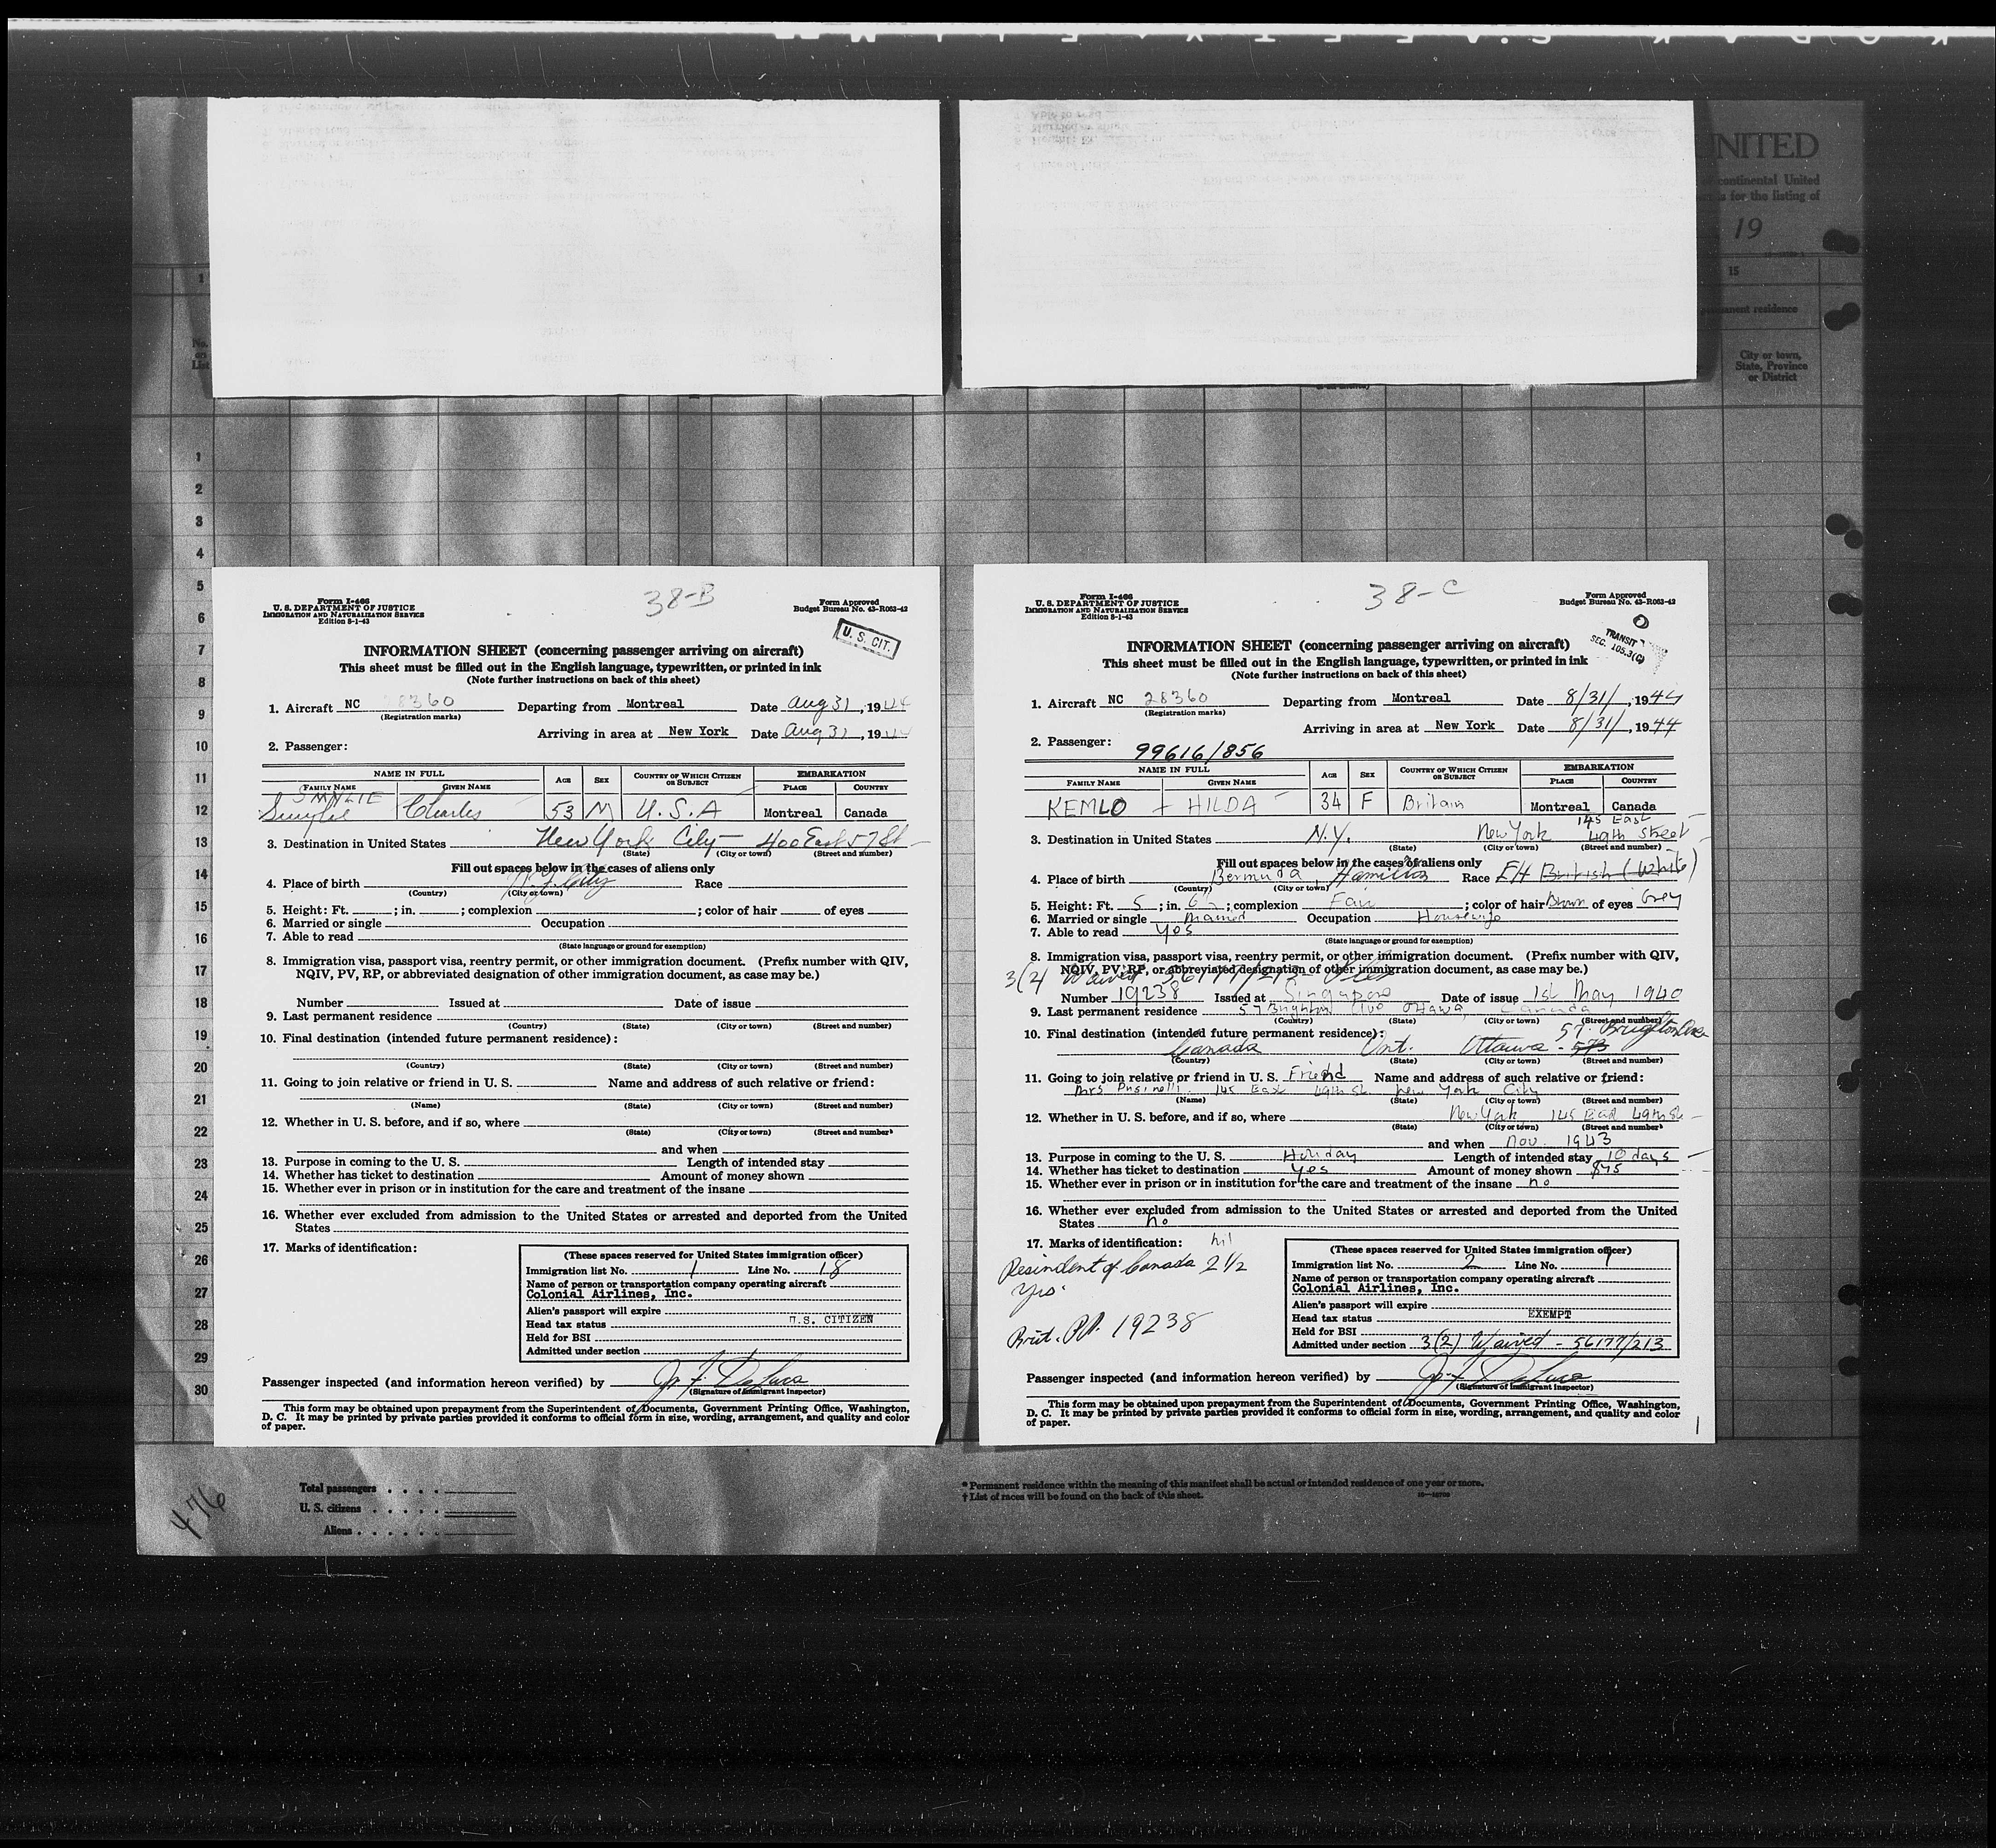 UNITED
continental United
s for the listing of
19
15
permanent residence
City or town,
State, Province
or District
1
No.
on
List
1
2
3
4
5
6
7
8
9
10
11
12
13
14
15
16
17
18
19
20
21
22
23
24
25
26
27
28
29
30
Form I-466
U. S. DEPARTMENT OF JUSTICE
IMMIGRATION AND NATURALIZATION SERVICE
Edition 8-1-43
38-B
Form Approved
Budget Bureau No. 43-R063-42
U. S. CIT.
INFORMATION SHEET (concerning passenger arriving on aircraft)
This sheet must be filled out in the English language, typewritten, or printed in ink
(Note further instructions on back of this sheet)
1. Aircraft NC 28360 Departing from Montreal Date Aug 31, 1944
(Registration marks)
Arriving in area at New York Date Aug 31, 1944
2. Passenger:
NAME IN FULL AGE SEX COUNTRY OF WHICH CITIZEN OR SUBJECT EMBARKATION
FAMILY NAME GIVEN NAME PLACE COUNTRY
Charles 53 M U.S.A Montreal Canada
3. Destination in United States New York City 400 East 57 St
(State) (City or town) (Street and number)
Fill out spaces below in the cases of aliens only
4. Place of birth N.Y. City Race
(Country) (City or town)
5. Height: Ft. ; in. ; complexion ; color of hair of eyes
6. Married or single Occupation
7. Able to read
(State language or ground for exemption)
8. Immigration visa, passport visa, reentry permit, or other immigration document. (Prefix number with QIV,
NQIV, PV, RP, or abbreviated designation of other immigration document, as case may be.)
Number Issued at Date of issue
9. Last permanent residence
(Country) (State) (City or town) (Street and number)
10. Final destination (intended future permanent residence):
(Country) (State) (City or town) (Street and number)
11. Going to join relative or friend in U. S. Name and address of such relative or friend:
(Name) (State) (City or town) (Street and number)
12. Whether in U. S. before, and if so, where
(State) (City or town) (Street and number)
and when
13. Purpose in coming to the U. S. Length of intended stay
14. Whether has ticket to destination Amount of money shown
15. Whether ever in prison or in institution for the care and treatment of the insane
16. Whether ever excluded from admission to the United States or arrested and deported from the United
States
17. Marks of identification:
(These spaces reserved for United States immigration officer)
Immigration list No. 1 Line No. 18
Name of person or transportation company operating aircraft
Colonial Airlines, Inc.
Alien's passport will expire
Head tax status U.S. CITIZEN
Held for BSI
Admitted under section
Passenger inspected (and information hereon verified) by
(Signature of Immigrant Inspector)
This form may be obtained upon prepayment from the Superintendent of Documents, Government Printing Office, Washington,
D. C. It may be printed by private parties provided it conforms to official form in size, wording, arrangement, and quality and color
of paper.
Form I-466
U. S. DEPARTMENT OF JUSTICE
IMMIGRATION AND NATURALIZATION SERVICE
Edition 8-1-43
38-C
Form Approved
Budget Bureau No. 43-R063-42
TRANSIT
SEC. 105.3(C)
INFORMATION SHEET (concerning passenger arriving on aircraft)
This sheet must be filled out in the English language, typewritten, or printed in ink
(Note further instructions on back of this sheet)
1. Aircraft NC 28360 Departing from Montreal Date 8/31/, 1944
(Registration marks)
Arriving in area at New York Date 8/31/, 1944
2. Passenger: 99616/856
NAME IN FULL AGE SEX COUNTRY OF WHICH CITIZEN OR SUBJECT EMBARKATION
FAMILY NAME GIVEN NAME PLACE COUNTRY
KEMLO HILDA 34 F Britain Montreal Canada
145 East
3. Destination in United States N.Y. New York 49th Street
(State) (City or town) (Street and number)
Fill out spaces below in the cases of aliens only
4. Place of birth Bermuda Hamilton Race EH British (White)
(Country) (City or town)
5. Height: Ft. 5 ; in. 6 ; complexion Fair ; color of hair Brown of eyes Grey
6. Married or single Married Occupation Housewife
7. Able to read Yes
(State language or ground for exemption)
8. Immigration visa, passport visa, reentry permit, or other immigration document. (Prefix number with QIV,
NQIV, PV, RP, or abbreviated designation of other immigration document, as case may be.)
3(2) Waived 56177/213
Number 19238 Issued at Singapore Date of issue 1st May 1940
9. Last permanent residence 57 Brighton Ave Ottawa Canada
(Country) (State) (City or town) (Street and number)
10. Final destination (intended future permanent residence): 57 Brighton Ave
Canada Ont. Ottawa - 573
(Country) (State) (City or town) (Street and number)
11. Going to join relative or friend in U. S. Friend Name and address of such relative or friend:
Mrs 145 East 49th St New York City
(Name) (State) (City or town) (Street and number)
12. Whether in U. S. before, and if so, where New York 145 East 49th St
(State) (City or town) (Street and number)
and when Nov. 1943
13. Purpose in coming to the U. S. Holiday Length of intended stay 10 days
14. Whether has ticket to destination Yes Amount of money shown $45
15. Whether ever in prison or in institution for the care and treatment of the insane no
16. Whether ever excluded from admission to the United States or arrested and deported from the United
States no
17. Marks of identification: nil
Resindent of Canada 2 1/2
yrs.
Brit. P.P. 19238
(These spaces reserved for United States immigration officer)
Immigration list No. 2 Line No. 1
Name of person or transportation company operating aircraft
Colonial Airlines, Inc.
Alien's passport will expire
Head tax status EXEMPT
Held for BSI
Admitted under section 3(2) Waived - 56177/213
Passenger inspected (and information hereon verified) by
(Signature of Immigrant Inspector)
This form may be obtained upon prepayment from the Superintendent of Documents, Government Printing Office, Washington,
D. C. It may be printed by private parties provided it conforms to official form in size, wording, arrangement, and quality and color
of paper.
1
476
Total passengers
U. S. citizens
Aliens
* Permanent residence within the meaning of this manifest shall be actual or intended residence of one year or more.
† List of races will be found on the back of this sheet.